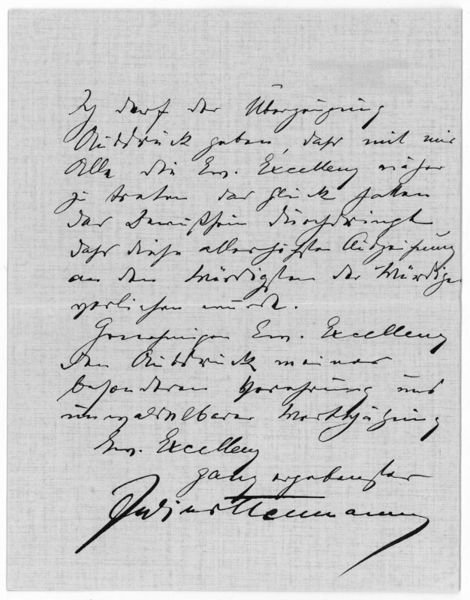 Ich darf der Überzeugung
Ausdruck geben, daß mit mir
Alle die Ew. Excellenz näher
zu treten das Glück hatten
das Bewußtsein durchdringt
daß diese allerhöchste Auszeichnung
an den Würdigsten der Würdigen
verliehen wurde.
Genehmigen Ew. Excellenz
den Ausdruck meiner
besonderen Verehrung und
unwandelbarer Wertschätzung
Ew. Excellenz
ganz ergebenster